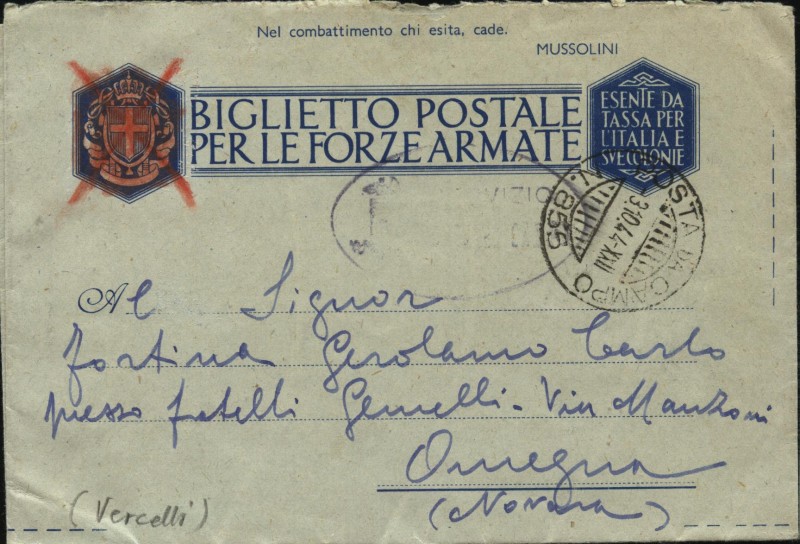 Nel combattimento chi esita, cade.
MUSSOLINI
BIGLIETTO POSTALE
PER LE FORZE ARMATE
ESENTE DA
TASSA PER
L'ITALIA E
SVE COLONIE
POSTA DA CAMPO N. 855
3.10.44-XXII
Al Signor
Fortina Gerolamo Carlo
presso fratelli Gemelli - Via Manzoni
Omegna
(Novara)
(Vercelli)